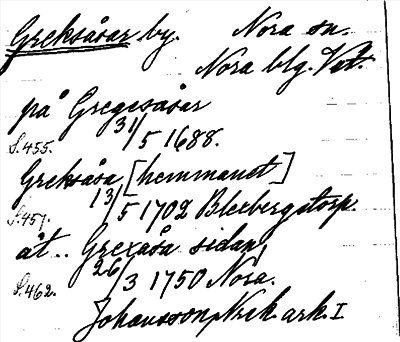 Greksåsar by. Nora sn.
Nora blg. Vstm.
på Gregesåsar
S.455. 31/5 1688.
Greksåsa [hemmanet]
S.457. 13/5 1702 Blexbergstorp.
åt.. Grexåsa sidan,
S.462. 26/3 1750 Nora.
Johansson, Nrk. ark. I